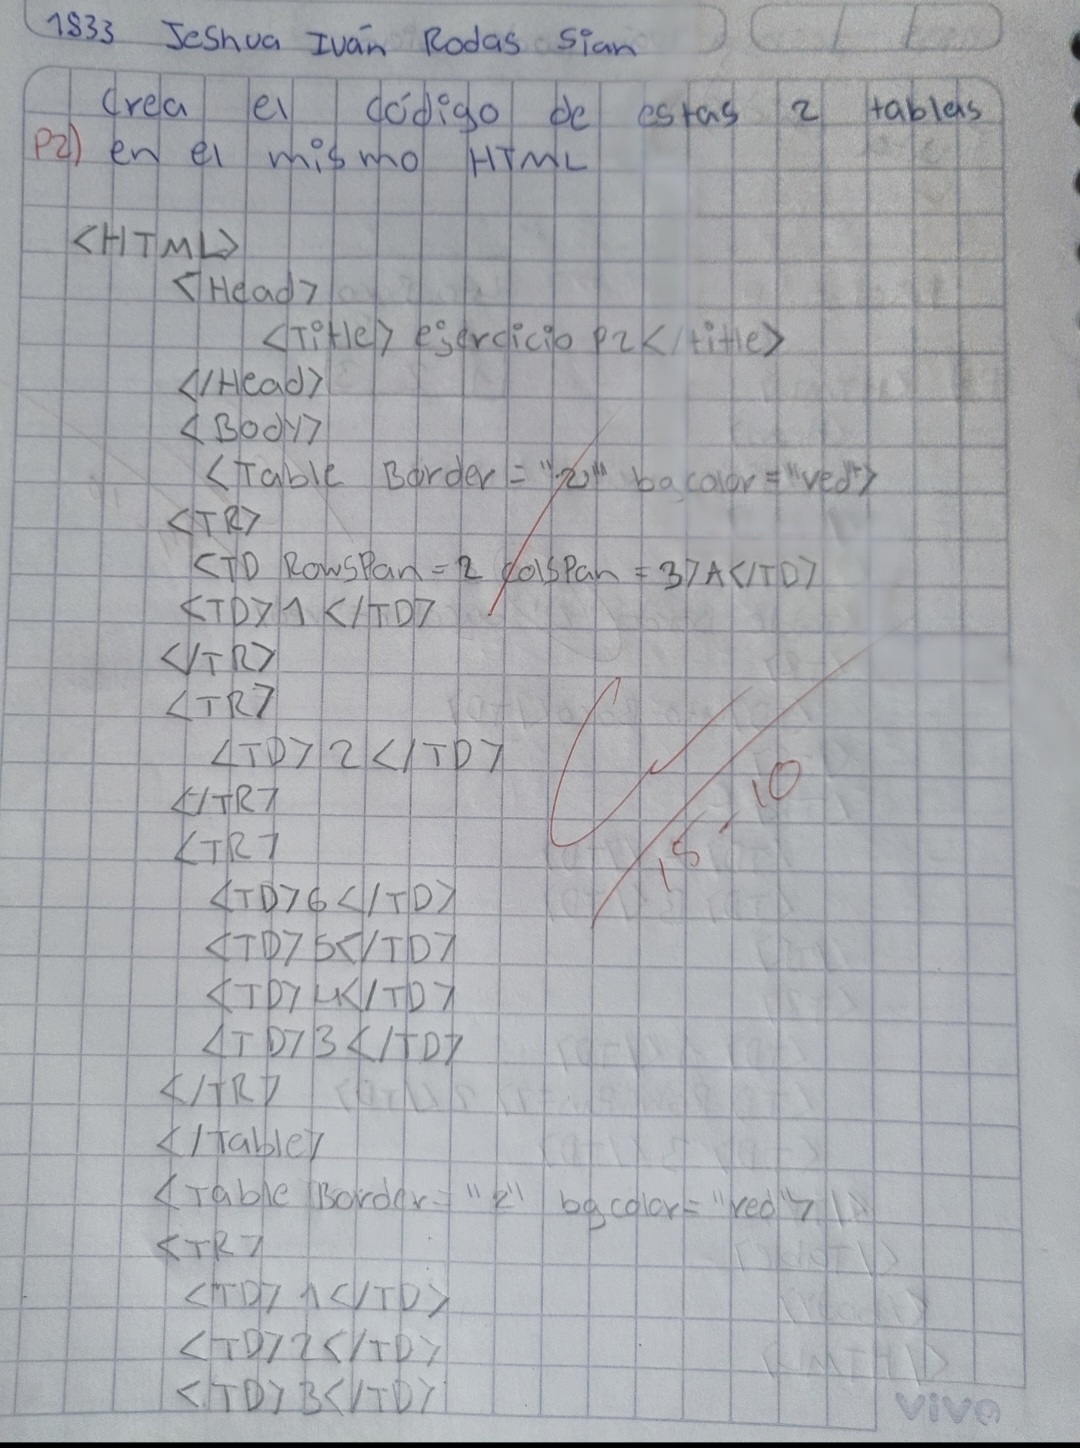 1833 Jeshua Iván Rodas Sian
Crea el código de estas 2 tablas
P2) en el mismo HTML
<HTML>
<Head>
<Title> ejercicio P2</title>
</Head>
<Body>
<Table Border = "2" bgcolor = "red">
<TR>
<TD RowsPan = 2 colsPan = 3>A</TD>
<TD>1 </TD>
</TR>
<TR>
<TD>2</TD>
</TR>
<TR>
<TD>6</TD>
<TD>5</TD>
<TD>4</TD>
<TD>3</TD>
</TR>
</Table>
<Table Border= "2" bgcolor= "red">
<TR>
<TD>1</TD>
<TD>2</TD>
<TD>3</TD>
15-10
vivo